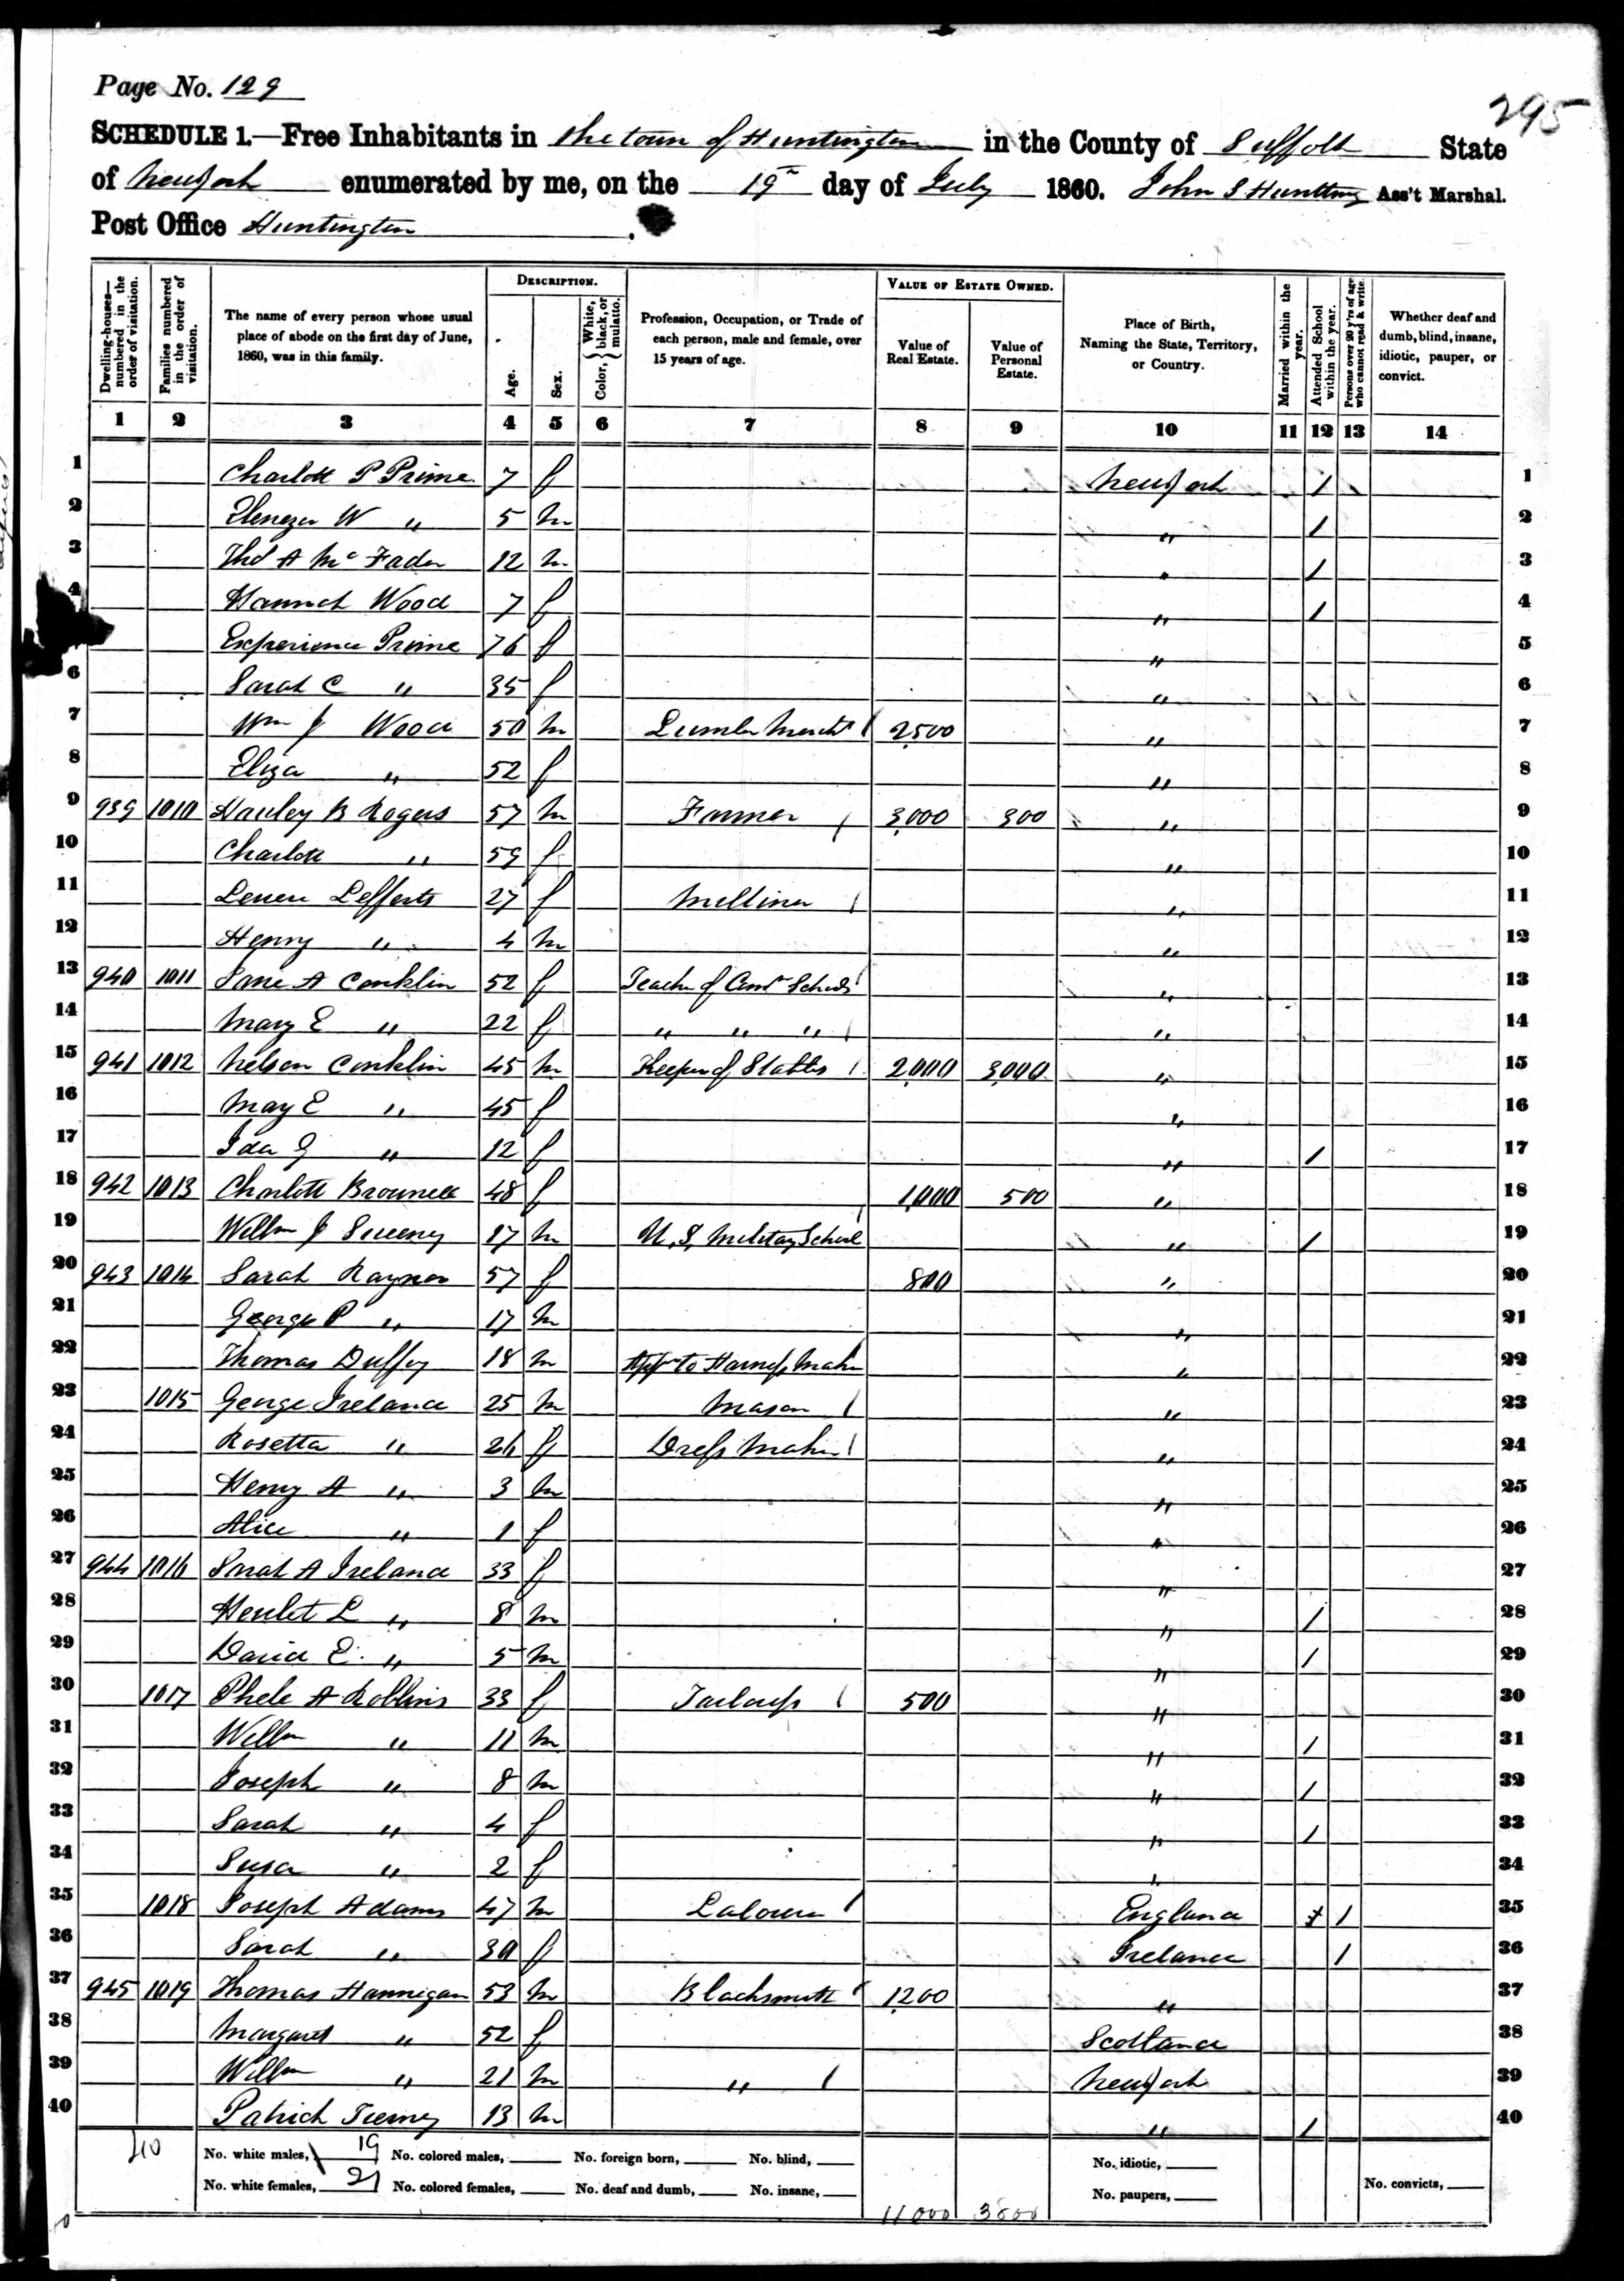 295
Page No. 129
SCHEDULE 1.—Free Inhabitants in the town of Huntington in the County of Suffolk State
of New York enumerated by me, on the 19th day of July 1860. John S Huntting Ass't Marshal.
Post Office Huntington.
Dwelling-houses—numbered in the order of visitation. Families numbered in the order of visitation. The name of every person whose usual place of abode on the first day of June, 1860, was in this family. DESCRIPTION. Age. Sex. Color, { White, black, or mulatto. Profession, Occupation, or Trade of each person, male and female, over 15 years of age. VALUE OF ESTATE OWNED. Value of Real Estate. Value of Personal Estate. Place of Birth, Naming the State, Territory, or Country. Married within the year. Attended School within the year. Persons over 20 y'rs of age who cannot read & write. Whether deaf and dumb, blind, insane, idiotic, pauper, or convict.
1 2 3 4 5 6 7 8 9 10 11 12 13 14
1 Charlott P Prime 7 f New York / 1
2 Ebenezer W " 5 m " / 2
3 Thos A McFaden 12 m " / 3
4 Hannah Wood 7 f " / 4
Experience Prime 76 f " 5
6 Sarah C " 35 f " 6
7 Wm J Wood 50 m Lumber Mercht / 2500 " 7
8 Eliza " 52 f " 8
9 939 1010 B Rogers 57 m Farmer / 3,000 300 " 9
10 Charlott " 59 f " 10
11 Lefferts 27 f Milliner / " 11
12 Henry " 4 m " 12
13 940 1011 Jane A Conklin 52 f Teacher of School / " 13
14 Mary E " 22 f " " " / " 14
15 941 1012 Nelson Conklin 45 m Keeper of Stables / 2,000 3,000 " 15
16 May E " 45 f " 16
17 Ida G " 12 f " / 17
18 942 1013 Charlott Brownell 48 f 1,000 500 " 18
19 Willm J Sweeny 17 m U.S. Military School " / 19
20 943 1014 Sarah Raynor 57 f 800 " 20
21 George P " 17 m " 21
22 Thomas Duffey 18 m App to Harness Maker " 22
23 1015 George Ireland 25 m Mason / " 23
24 Rosetta " 26 f Dress Maker / " 24
25 Henry A " 3 m " 25
26 Alice " 1 f " 26
27 944 1016 Sarah A Ireland 33 f " 27
28 Hewlet L " 8 m " / 28
29 David E. " 5 m " / 29
30 1017 Phebe A Robbins 33 f Tailoress / 500 " 30
31 Willm " 11 m " / 31
32 Joseph " 8 m " / 32
33 Sarah " 4 f " / 33
34 Susa " 2 f " 34
35 1018 Joseph Adams 47 m Laborer / England / 35
36 Sarah " 30 f Ireland / 36
37 945 1019 Thomas Hannigan 53 m Blacksmith / 1200 " 37
38 Margaret " 52 f Scotland 38
39 Willm " 21 m " / New York 39
40 Patrick 13 m " / 40
40 No. white males, 19 No. colored males, No. foreign born, No. blind, No. idiotic,
No. white females, 21 No. colored females, No. deaf and dumb, No. insane, No. paupers, No. convicts,
11000 3800